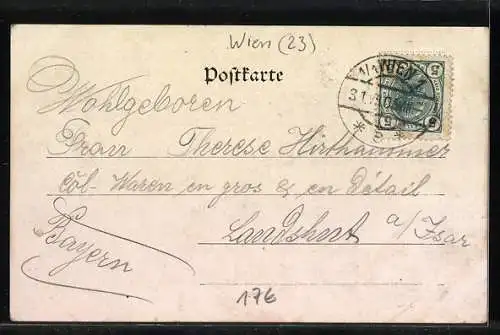 Wien (23)
Postkarte
1/1 WIEN 1
Wohlgeboren
Frau Therese Hirthammer
Cól- Waren en gros & en Détail
Landshut a/Isar
Bayern
176